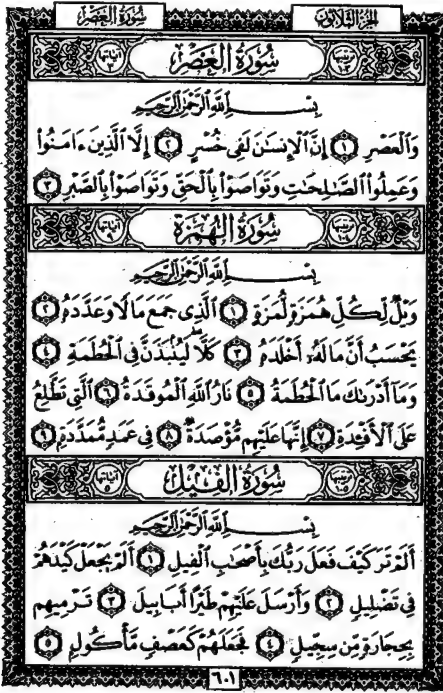 سُورَةُ العَصْرِ
الجُزْءُ الثَّلَاثُونَ
سُورَةُ العَصْرِ
بِسْمِ اللَّهِ الرَّحْمَٰنِ الرَّحِيمِ
وَٱلْعَصْرِ ١ إِنَّ ٱلْإِنسَٰنَ لَفِى خُسْرٍ ٢ إِلَّا ٱلَّذِينَ ءَامَنُوا۟
وَعَمِلُوا۟ ٱلصَّٰلِحَٰتِ وَتَوَاصَوْا۟ بِٱلْحَقِّ وَتَوَاصَوْا۟ بِٱلصَّبْرِ ٣
سُورَةُ الهُمَزَةِ
بِسْمِ اللَّهِ الرَّحْمَٰنِ الرَّحِيمِ
وَيْلٌ لِّكُلِّ هُمَزَةٍ لُّمَزَةٍ ١ ٱلَّذِى جَمَعَ مَالًا وَعَدَّدَهُۥ ٢
يَحْسَبُ أَنَّ مَالَهُۥٓ أَخْلَدَهُۥ ٣ كَلَّا ۖ لَيُنۢبَذَنَّ فِى ٱلْحُطَمَةِ ٤
وَمَآ أَدْرَىٰكَ مَا ٱلْحُطَمَةُ ٥ نَارُ ٱللَّهِ ٱلْمُوقَدَةُ ٦ ٱلَّتِى تَطَّلِعُ
عَلَى ٱلْأَفْـِٔدَةِ ٧ إِنَّهَا عَلَيْهِم مُّؤْصَدَةٌ ٨ فِى عَمَدٍ مُّمَدَّدَةٍۭ ٩
سُورَةُ الفِيلِ
بِسْمِ اللَّهِ الرَّحْمَٰنِ الرَّحِيمِ
أَلَمْ تَرَ كَيْفَ فَعَلَ رَبُّكَ بِأَصْحَٰبِ ٱلْفِيلِ ١ أَلَمْ يَجْعَلْ كَيْدَهُمْ
فِى تَضْلِيلٍ ٢ وَأَرْسَلَ عَلَيْهِمْ طَيْرًا أَبَابِيلَ ٣ تَرْمِيهِم
بِحِجَارَةٍ مِّن سِجِّيلٍ ٤ فَجَعَلَهُمْ كَعَصْفٍ مَّأْكُولٍۭ ٥
٦٠١